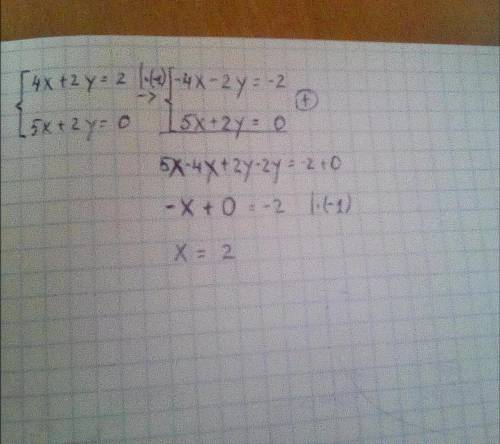 {4x+2y=2 |·(-1) -> {-4x-2y=-2
{5x+2y=0 {5x+2y=0 ⊕
5x-4x+2y-2y=-2+0
-x+0=-2 |·(-1)
x=2